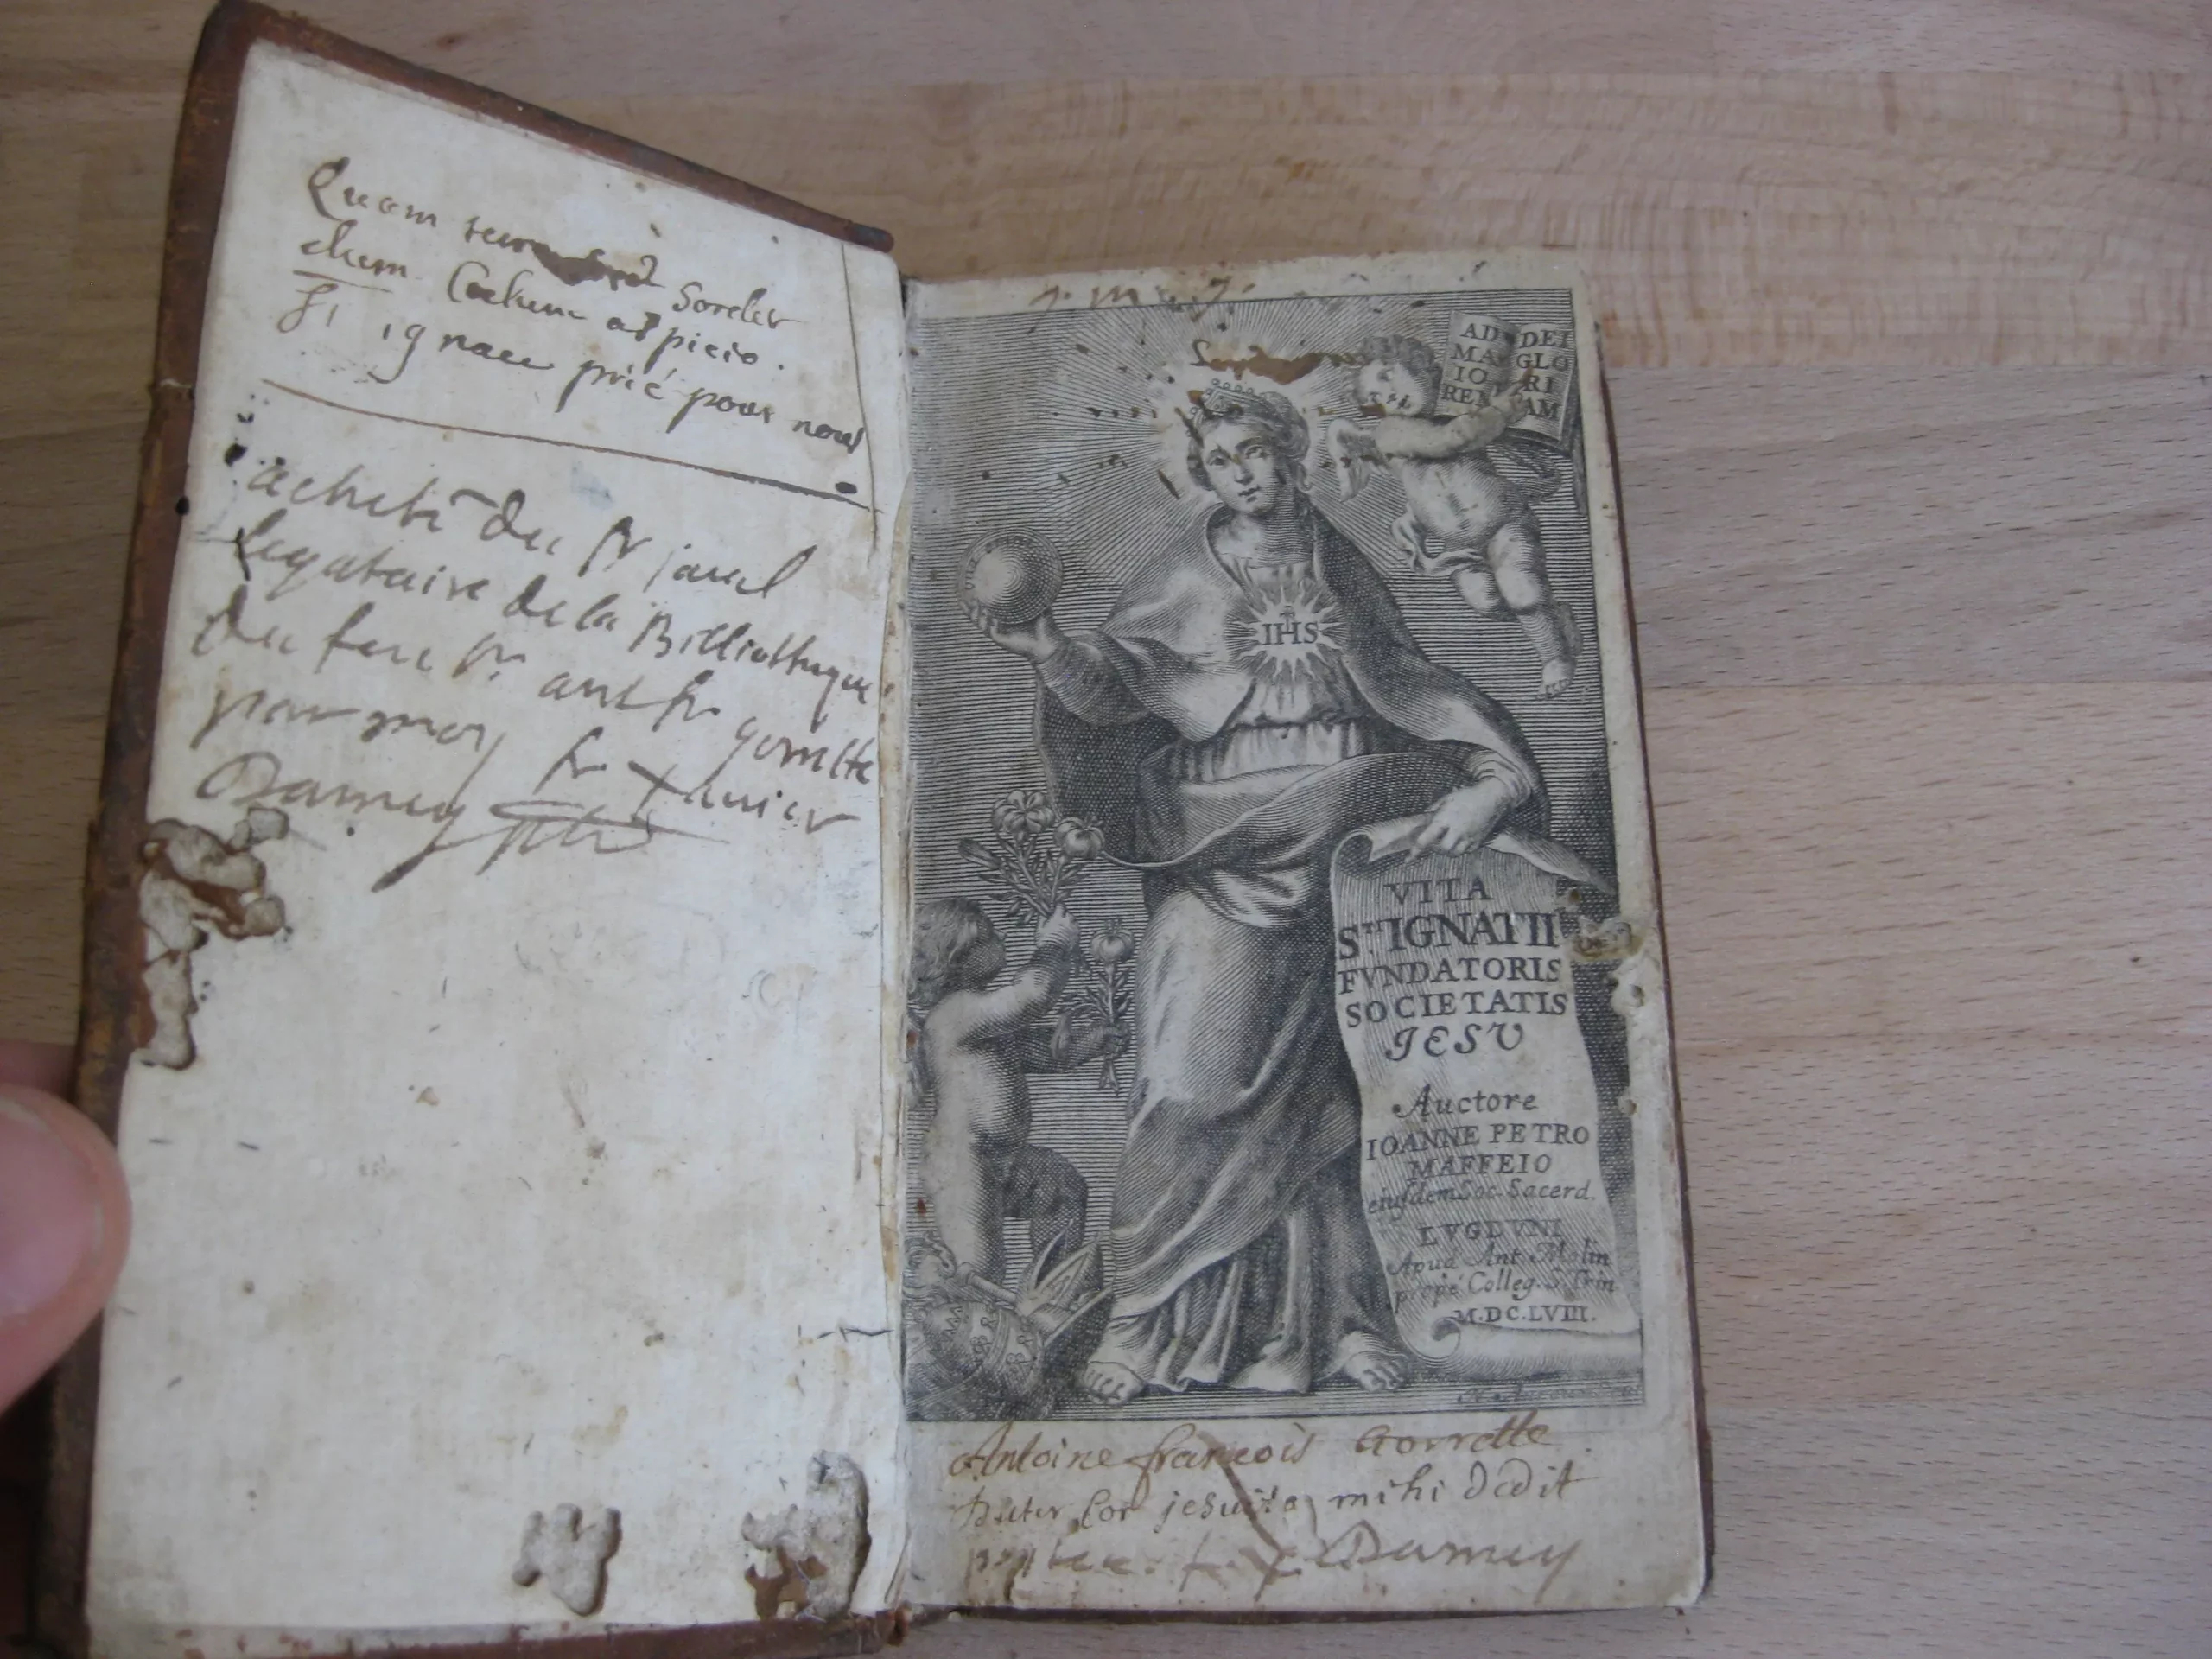 Quam sordet
dum Coelum aspicio.
St ignace prié pour nous
acheté du Sr javel
legataire de la Bibliotheque
du feu Sr ant fr gorrette
par moy fr Xavier
Damey
j. m. j.
AD DEI
MA GLO
IO RI
REM AM
IHS
VITA
S.TI IGNATII
FVNDATORIS
SOCIETATIS
JESV
Auctore
IOANNE PETRO
MAFFEIO
eiusdem Soc. Sacerd.
LVGDVNI
Apud Ant. Molin
prope Colleg. S. Trin
M.DC.LVIII.
Antoine francois Gorrette
jesuita mihi dedit
Damey